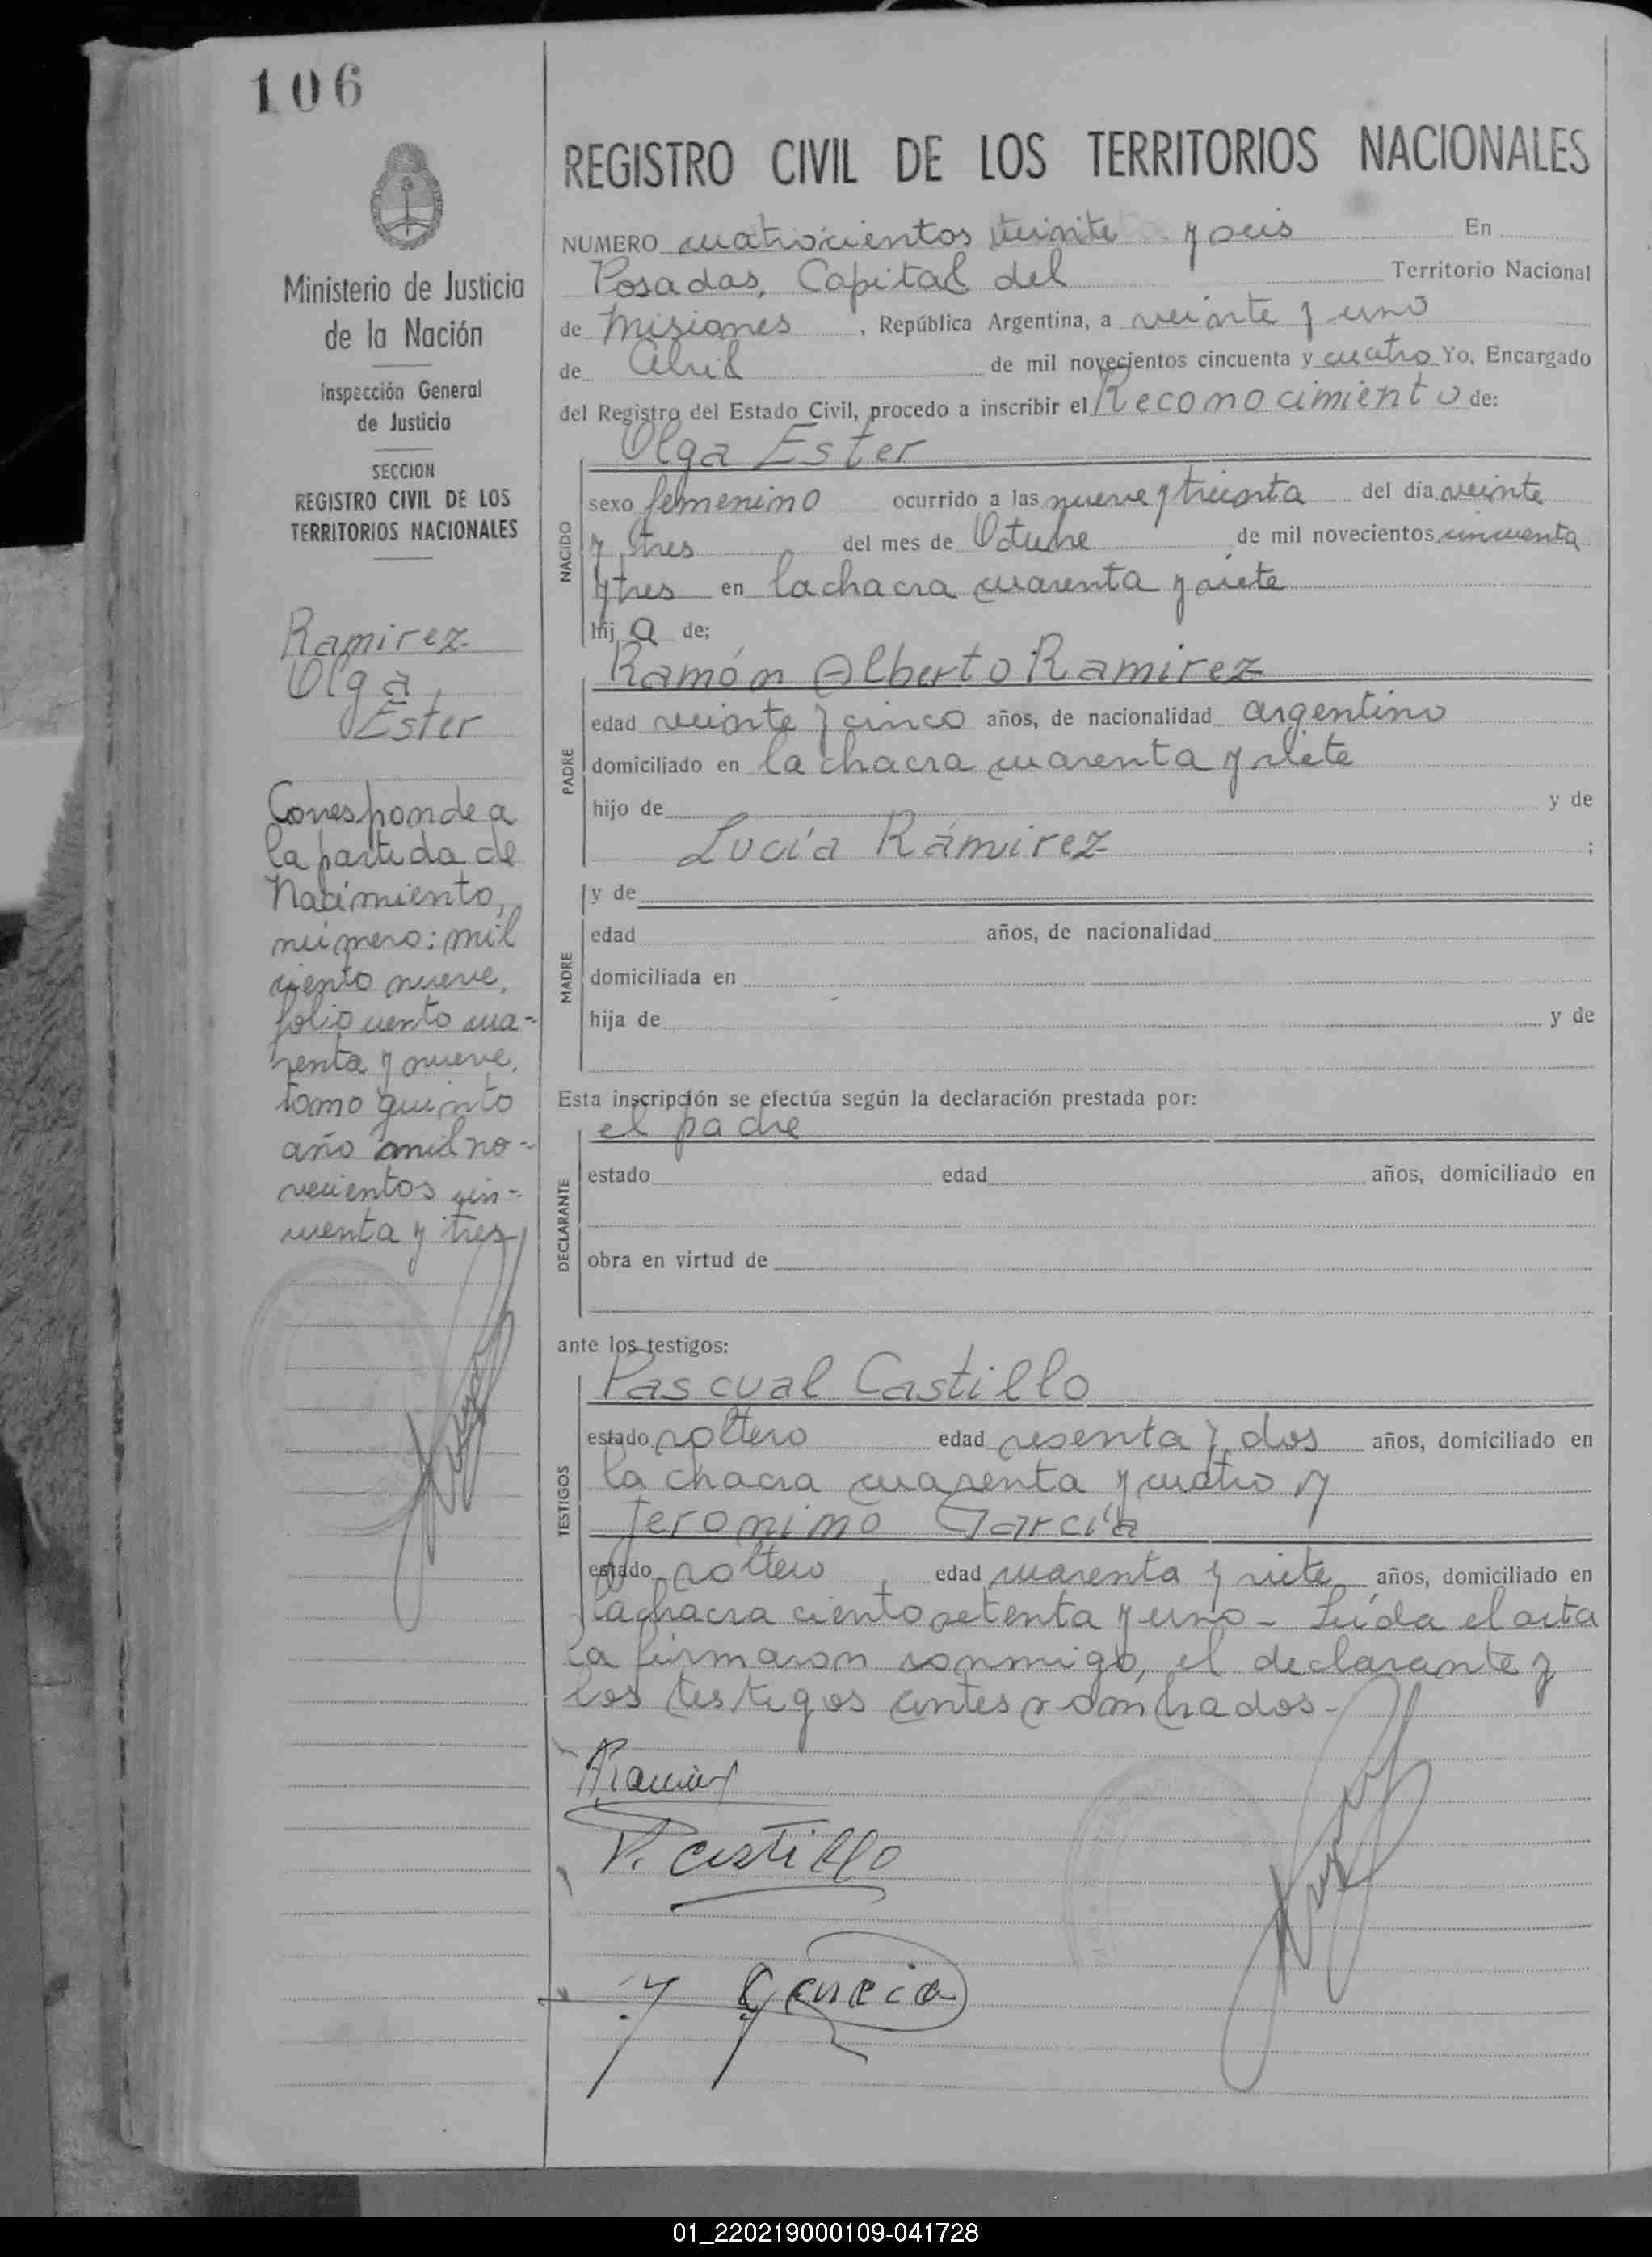 106
Ministerio de Justicia
de la Nación
Inspección General
de Justicia
SECCION
REGISTRO CIVIL DE LOS
TERRITORIOS NACIONALES
Ramirez
Olga
Ester
Corresponde a
la partida de
Nacimiento,
número: mil
ciento nueve,
folio ciento cua-
renta y nueve,
tomo quinto
año mil no-
vecientos cin-
cuenta y tres
REGISTRO CIVIL DE LOS TERRITORIOS NACIONALES
NUMERO cuatrocientos veinte y seis En
Posadas, Capital del Territorio Nacional
de Misiones, República Argentina, a veinte y uno
de Abril de mil novecientos cincuenta y cuatro Yo, Encargado
del Registro del Estado Civil, procedo a inscribir el Reconocimiento de:
Olga Ester
NACIDO
sexo femenino ocurrido a las nueve y treinta del día veinte
y tres del mes de Octubre de mil novecientos cincuenta
y tres en la chacra cuarenta y siete
hij a de;
Ramón Alberto Ramirez
PADRE
edad veinte y cinco años, de nacionalidad argentino
domiciliado en la chacra cuarenta y siete
hijo de y de
Lucía Rámirez ;
MADRE
y de
edad años, de nacionalidad
domiciliada en
hija de y de
Esta inscripción se efectúa según la declaración prestada por:
el padre
DECLARANTE
estado edad años, domiciliado en
obra en virtud de
ante los testigos:
Pascual Castillo
TESTIGOS
estado soltero edad sesenta y dos años, domiciliado en
la chacra cuarenta y cuatro y
Jeronimo García
estado soltero edad cuarenta y siete años, domiciliado en
la chacra ciento setenta y uno - Leída el acta
la firmaron conmigo, el declarante y
los testigos antes nombrados -
P. Castillo
J Garcia
01_220219000109-041728